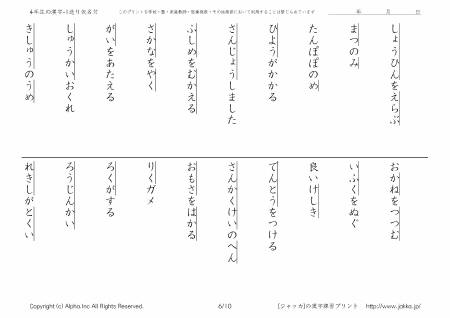 4年生の漢字-1送り仮名付 このプリントを学校・塾・家庭教師・医療機関・その他施設において利用することは禁じられています 年 月 日
しょうひんをえらぶ
まつのみ
たんぽぽのめ
ひようがかかる
さんじょうしました
ふしめをむかえる
さかなをやく
がいをあたえる
しゅうかいおくれ
きしゅうのうめ
おかねをつつむ
いふくをぬぐ
良いけしき
でんとうをつける
さんかくけいのへん
おもさをはかる
りくガメ
ろくがする
ろうじんかい
れきしがとくい
Copyright (c) Alpha.Inc All Rights Reserved. 6/10 [ジャッカ]の漢字練習プリント http://www.jakka.jp/